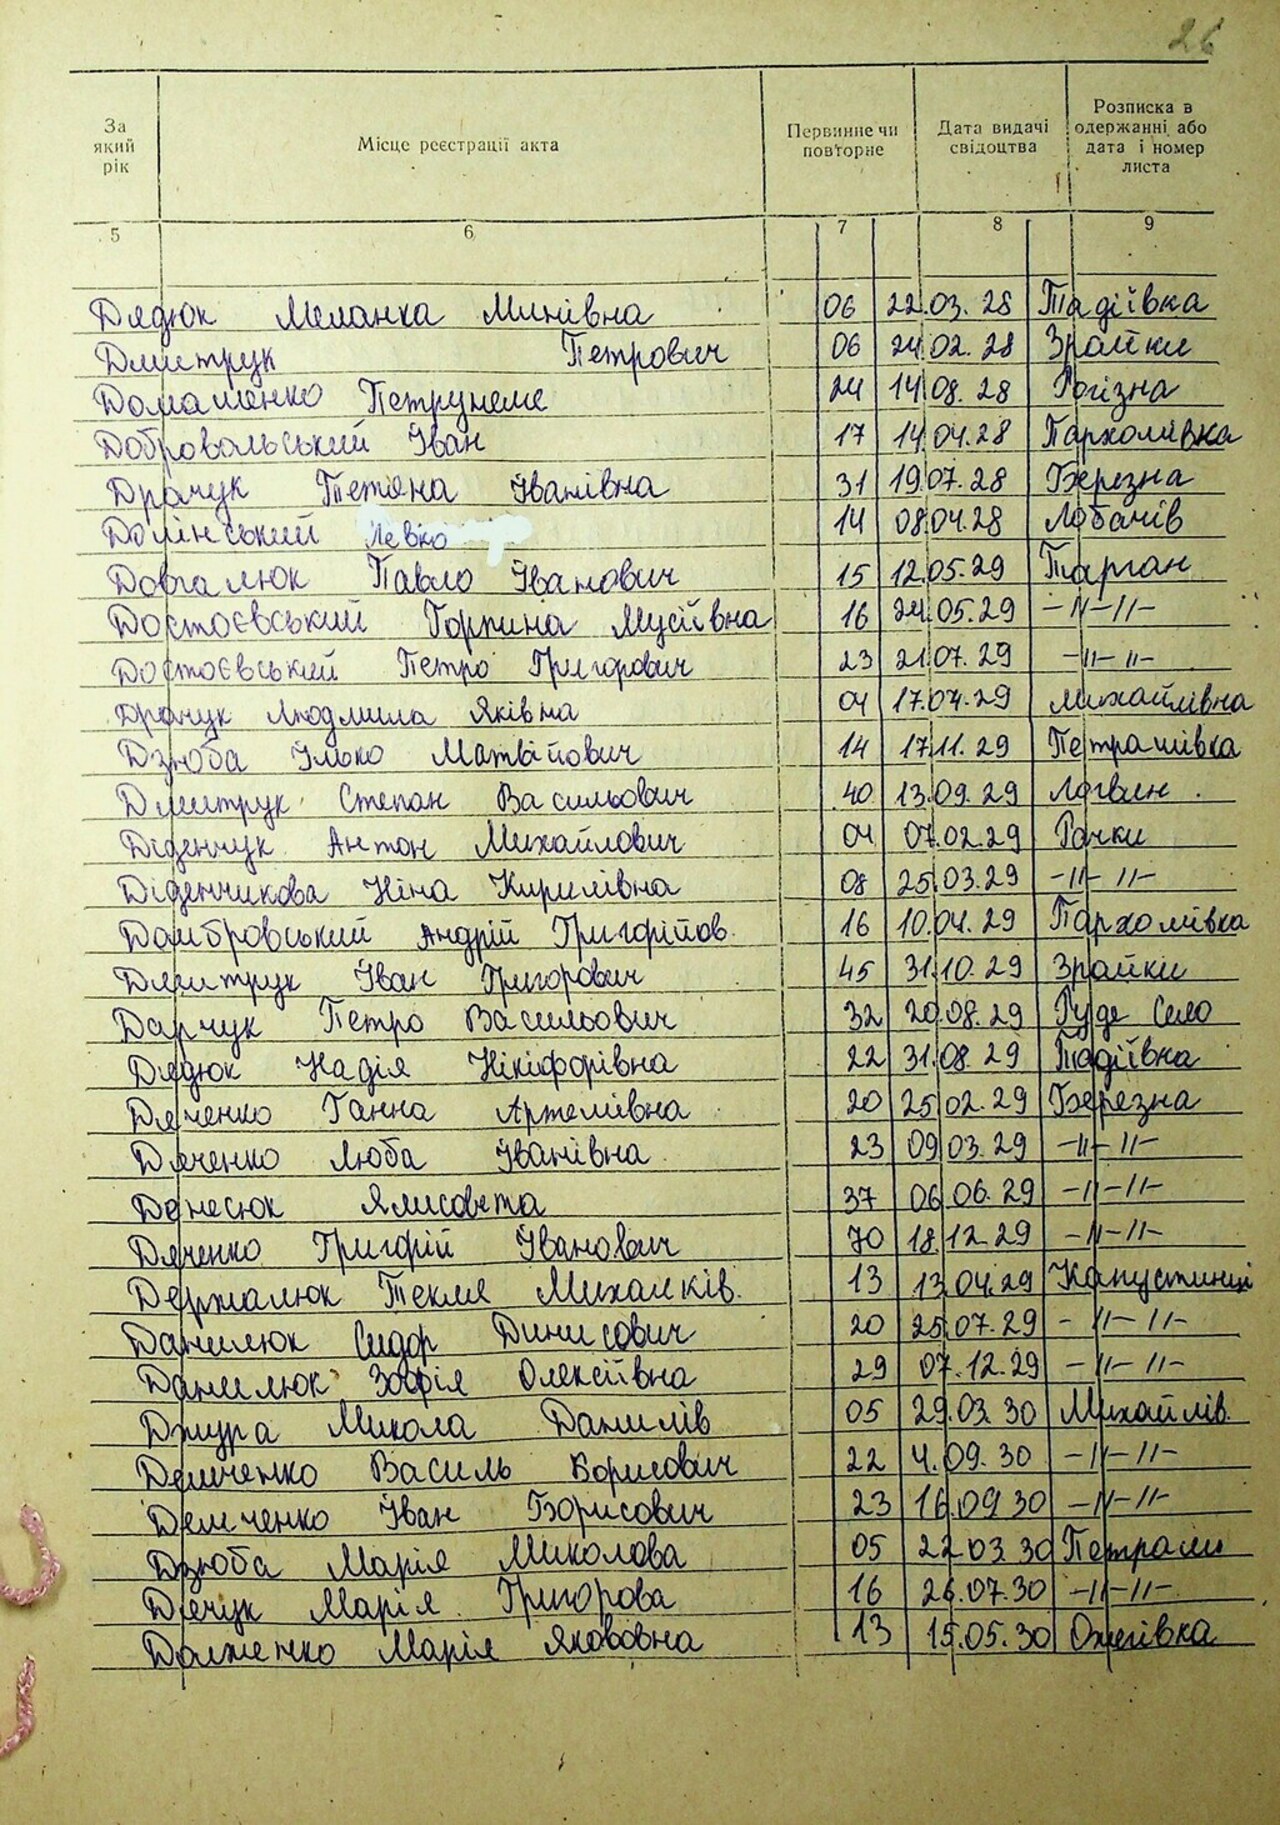 26
За який рік
Місце реєстрації акта
Первинне чи повторне
Дата видачі свідоцтва
Розписка в одержанні або дата і номер листа
5 6 7 8 9
Дядюк Меланка Минівна 06 22.03.28 Тадіївка
Дмитрук Петрович 06 24.02.28 Зрайки
Домашенко 24 14.08.28 Рогізна
Добровольський Іван 17 14.04.28 Пархомівка
Драчук Тетяна Іванівна 31 19.07.28 Березна
Долінський Левко 14 08.04.28 Лобачів
Довгалюк Павло Іванович 15 12.05.29 Тарган
Достоєвський Горпина Мусіївна 16 24.05.29 -11-11-
Достоєвський Петро Григорович 23 21.07.29 -11- 11-
Драчук Людмила Яківна 04 17.04.29 Михайлівна
Дзюба Ілько Матвійович 14 17.11.29 Петрашівка
Дмитрук Степан Васильович 40 13.09.29 Логвин.
Діденчук Антон Михайлович 04 07.02.29 Рачки
Діденчикова Ніна Кирилівна 08 25.03.29 -11- 11-
Домбровський Андрій Григорійов. 16 10.04.29 Пархомівка
Дмитрук Іван Григорович 45 31.10.29 Зрайки
Дарчук Петро Васильович 32 20.08.29 Руде Село
Дядюк Надія Нікіфорівна 22 31.08.29 Тадіївна
Дяченко Ганна Артемівна 20 25.02.29 Березна
Дяченко Люба Іванівна 23 09.03.29 -11-11-
Денесюк Ялисовета 37 06.06.29 -11-11-
Дяченко Григорій Іванович 70 18.12.29 -11-11-
Держалюк Текля Михалків. 13 13.04.29 Капустинці
Данилюк Сидор Динисович 20 25.07.29 - 11- 11-
Данилюк Зофія Олексіївна 29 07.12.29 -11- 11-
Джура Микола Данилів 05 29.03.30 Михайлів.
Демченко Василь Борисович 22 4.09.30 -11-11-
Демченко Іван Борисович 23 16.09.30 -11-11-
Дзюба Марія Миколова 05 22.03.30 Петраши
Дячук Марія Григорова 16 26.07.30 -11-11-
Долженко Марія Яковвна 13 15.05.30 Ожегівка